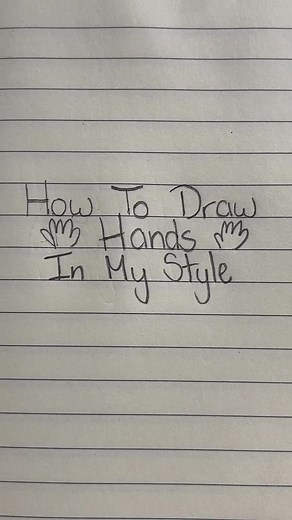 How To Draw
Hands
In My Style